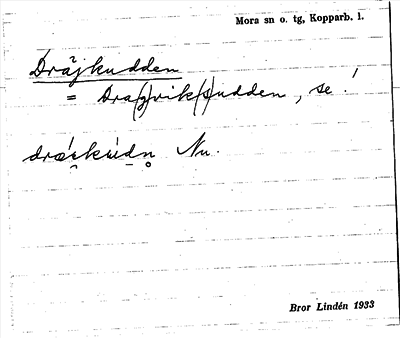 Mora sn o. tg, Kopparb. l.
Dräjkudden
= Dra(g)vik(s)udden, se !
drǽi̯kúdn̥ Nu.
Bror Lindén 1933